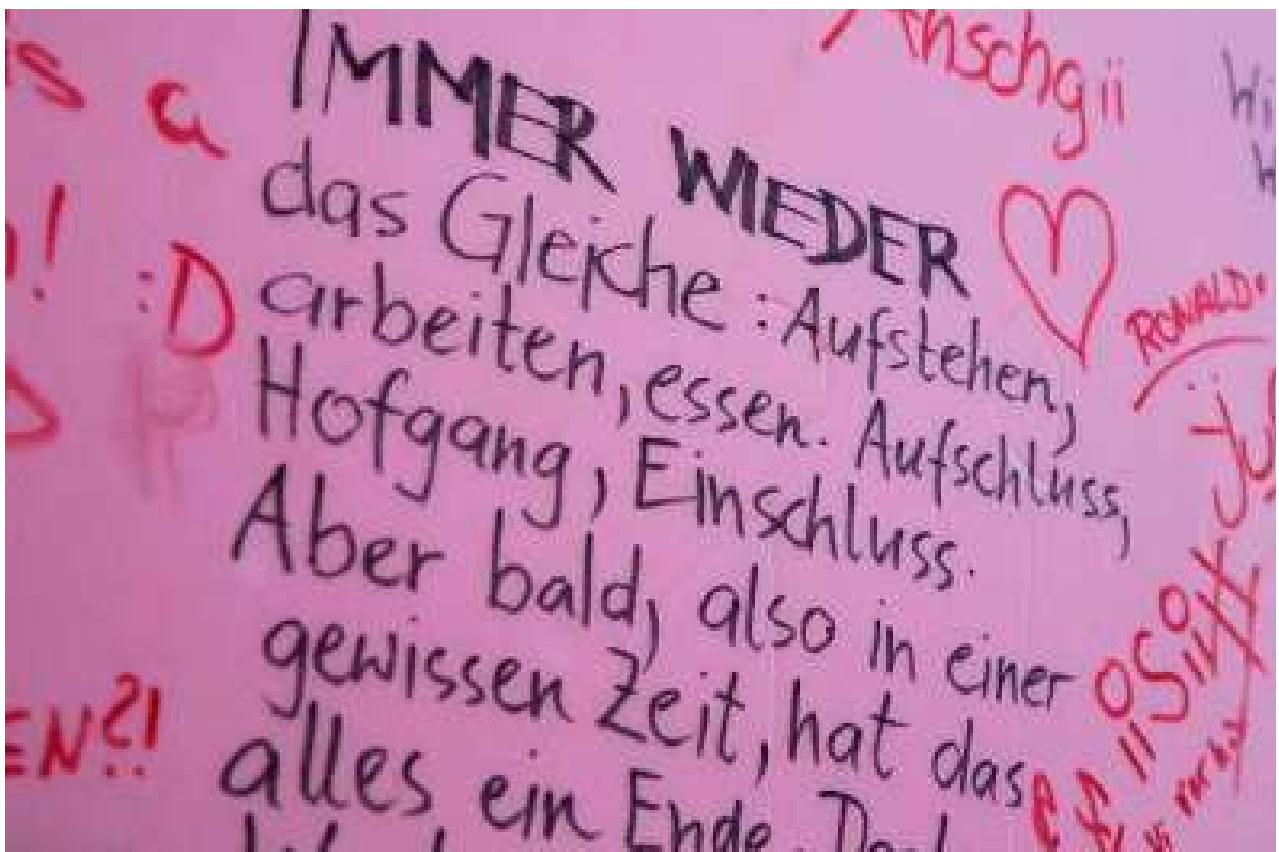 IMMER WIEDER
das Gleiche: Aufstehen,
arbeiten, essen. Aufschluss,
Hofgang, Einschluss.
Aber bald, also in einer
gewissen Zeit, hat das
alles ein Ende.
a
:D
Anschgii
RONALD.